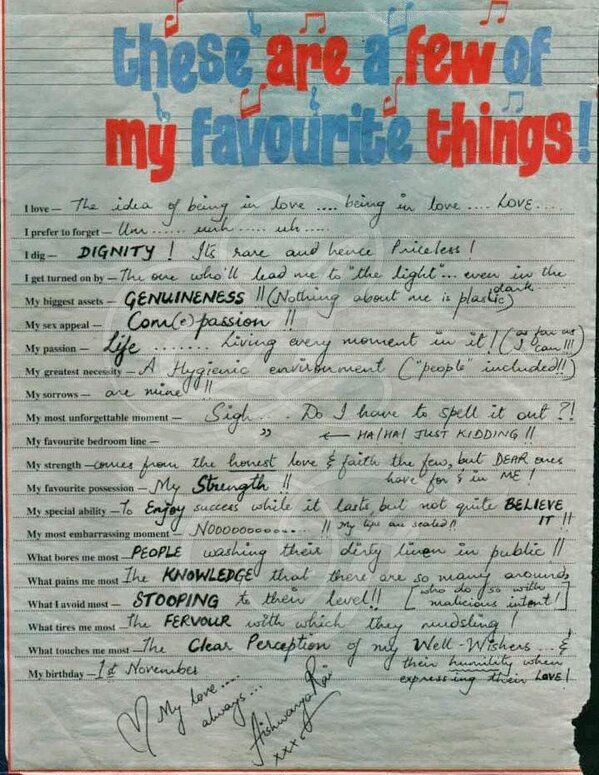 these are a few of
my favourite things!
I love — The idea of being in love .... being in love .... LOVE....
I prefer to forget — Um ...... umh ..... uh .....
I dig — DIGNITY! Its rare and hence Priceless!
I get turned on by — The one who'll lead me to "the light"... even in the dark...
My biggest assets — GENUINENESS!! (Nothing about me is plastic)
My sex appeal — Com(e)passion!!
My passion — Life ......... Living every moment in it! (as far as I can!!!)
My greatest necessity — A Hygienic environment ("people" included!!)
My sorrows — are mine!!
My most unforgettable moment — Sigh .... Do I have to spell it out?!
My favourite bedroom line — " ← HA!HA! JUST KIDDING!!
My strength — comes from the honest love & faith the few, but DEAR ones have for & in ME!
My favourite possession — My Strength!!
My special ability — To Enjoy success while it lasts, but not quite BELIEVE IT!!
My most embarrassing moment — NOOOOOOOOO.....!! My lips are sealed!!
What bores me most — PEOPLE washing their dirty linen in public!!
What pains me most — The KNOWLEDGE that there are so many around, [who do so with malicious intent!]
What I avoid most — STOOPING to their level!!
What tires me most — The FERVOUR with which they mudsling!
What touches me most — The Clear Perception of my Well-Wishers ... & their humility when expressing their LOVE!
My birthday — 1st November
My love....
always...
Aishwarya Rai
xxx